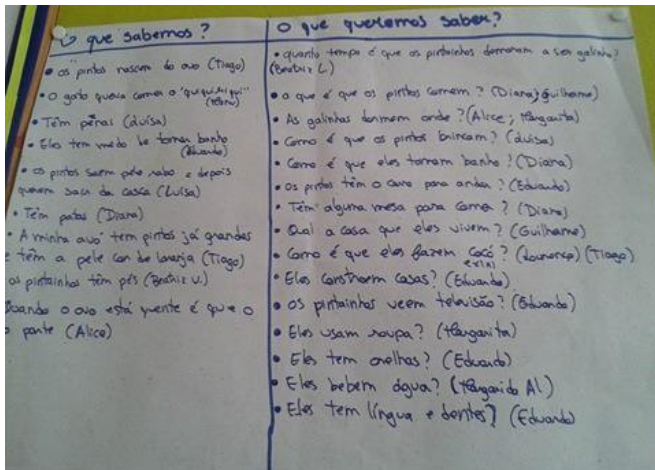 O que sabemos?
• os "pintos nascem do ovo (Tiago)
• O gato queria comer o "qui qui ri qui"
• Têm penas (Luísa)
• Eles tem medo de tomar banho
(Eduardo)
• os pintos saem pelo rabo e depois
querem sair da casca (Luísa)
• Têm patas (Diana)
• A minha avó tem pintos já grandes
e têm a pele cor de laranja (Tiago)
os pintainhos têm pés (Beatriz V.)
Quando o ovo está quente é que o
parte (Alice)
O que queremos saber?
• quanto tempo é que os pintainhos demoram a ser galinha?
(Beatriz L.)
• o que é que os pintos comem? (Diana; Guilherme)
• As galinhas dormem onde? (Alice; Margarita)
• Como é que os pintos brincam? (Luísa)
• Como é que eles tomam banho? (Diana)
• os pintos têm o para andar? (Eduardo)
• Têm alguma mesa para comer? (Diana)
• Qual a casa que eles vivem? (Guilherme)
• Como é que eles fazem cocó? (Lourenço) (Tiago)
e xixi
• Eles constroem casas? (Eduardo)
• os pintainhos veem televisão? (Eduardo)
• Eles usam roupa? (Margarita)
• Eles tem orelhas? (Eduardo)
• Eles bebem água? (Margarida Al)
• Eles tem língua e dentes? (Eduardo)